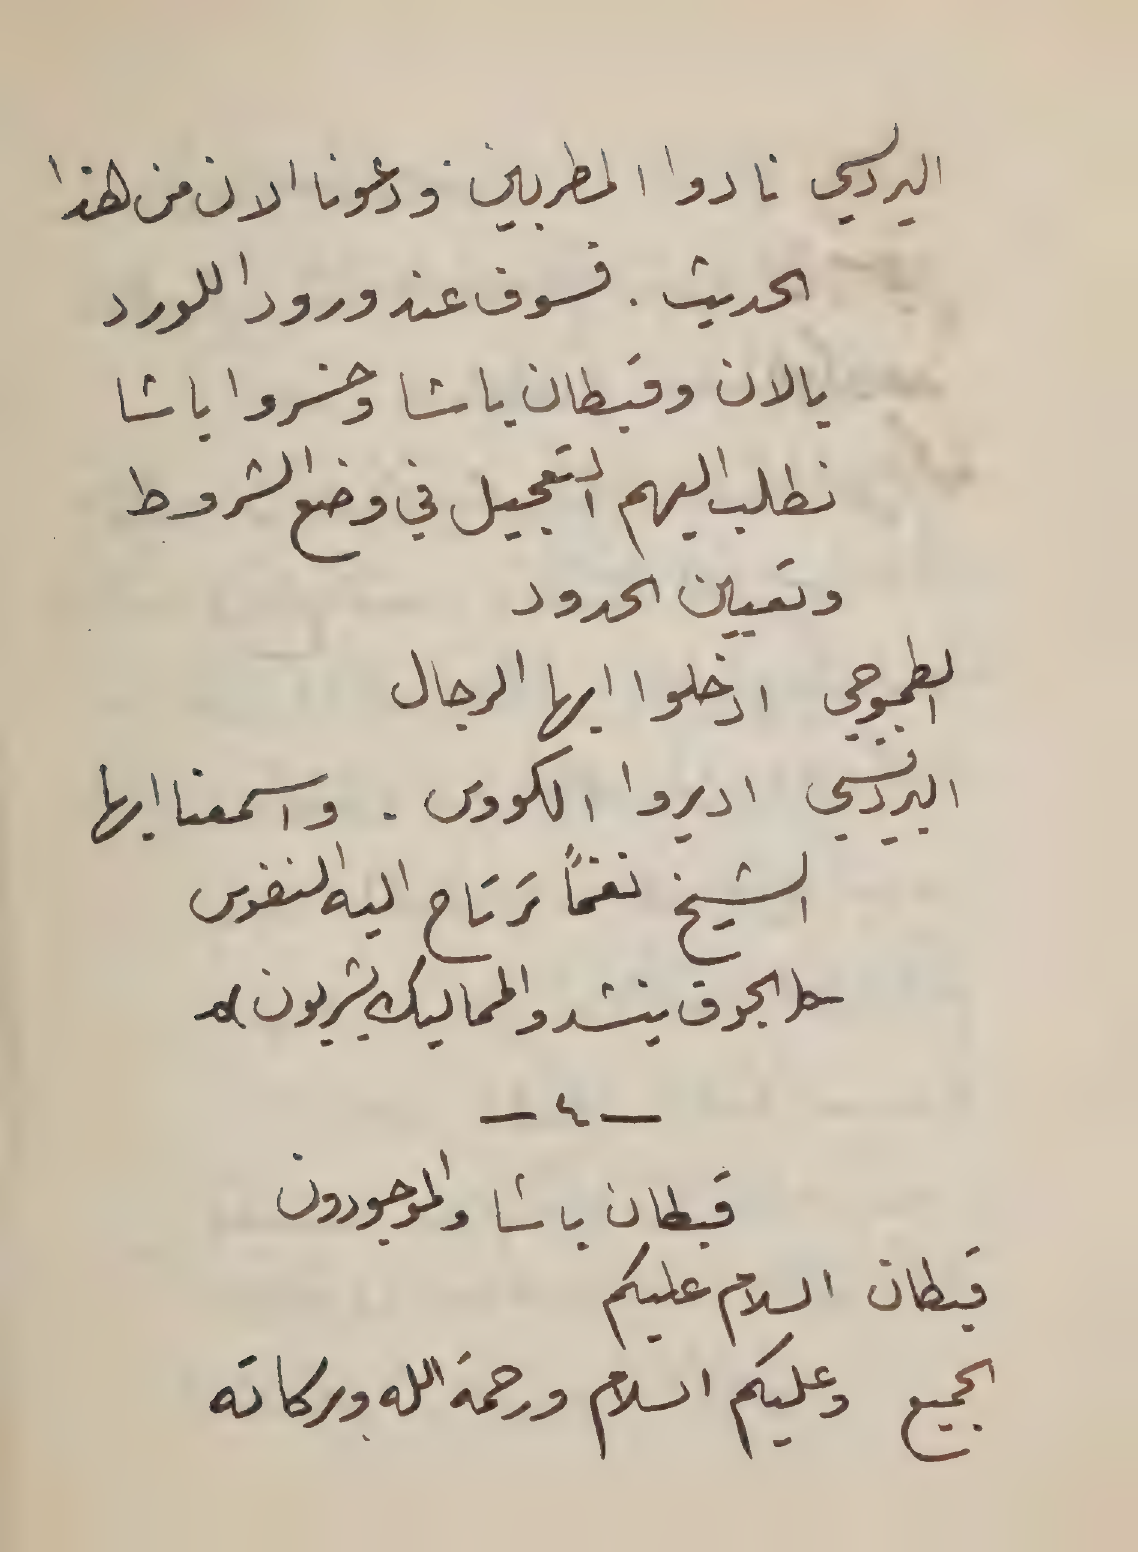 البرديسي نادوا المطربين ودعونا الان من هذا
الحديث . فسوف عند ورود اللورد
يالان وقبطان باشا وخسروا باشا
نطلب اليهم التعجيل في وضع الشروط
وتعيين الحدود
الطمبوجي ادخلوا ايها الرجال
البرديسي اديروا الكووس . واسمعنا ايها
الشيخ نغماً ترتاح اليه النفوس
(الجوق ينشد والمماليك يشربون)
— ٤ —
قبطان باشا والموجودون
قبطان السلام عليكم
الجميع وعليكم السلام ورحمة الله وبركاته